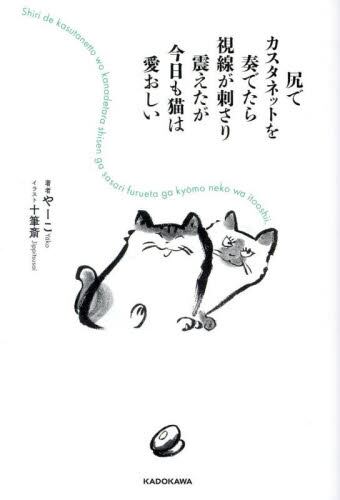 Shiri de kasutanetto wo kanadetara shisen ga sasari furueta ga kyōmo neko wa itooshii,
尻で
カスタネットを
奏でたら
視線が刺さり
震えたが
今日も猫は
愛おしい
著者 やーこ Yako
イラスト 十筆斎 Jippitsusai
KADOKAWA